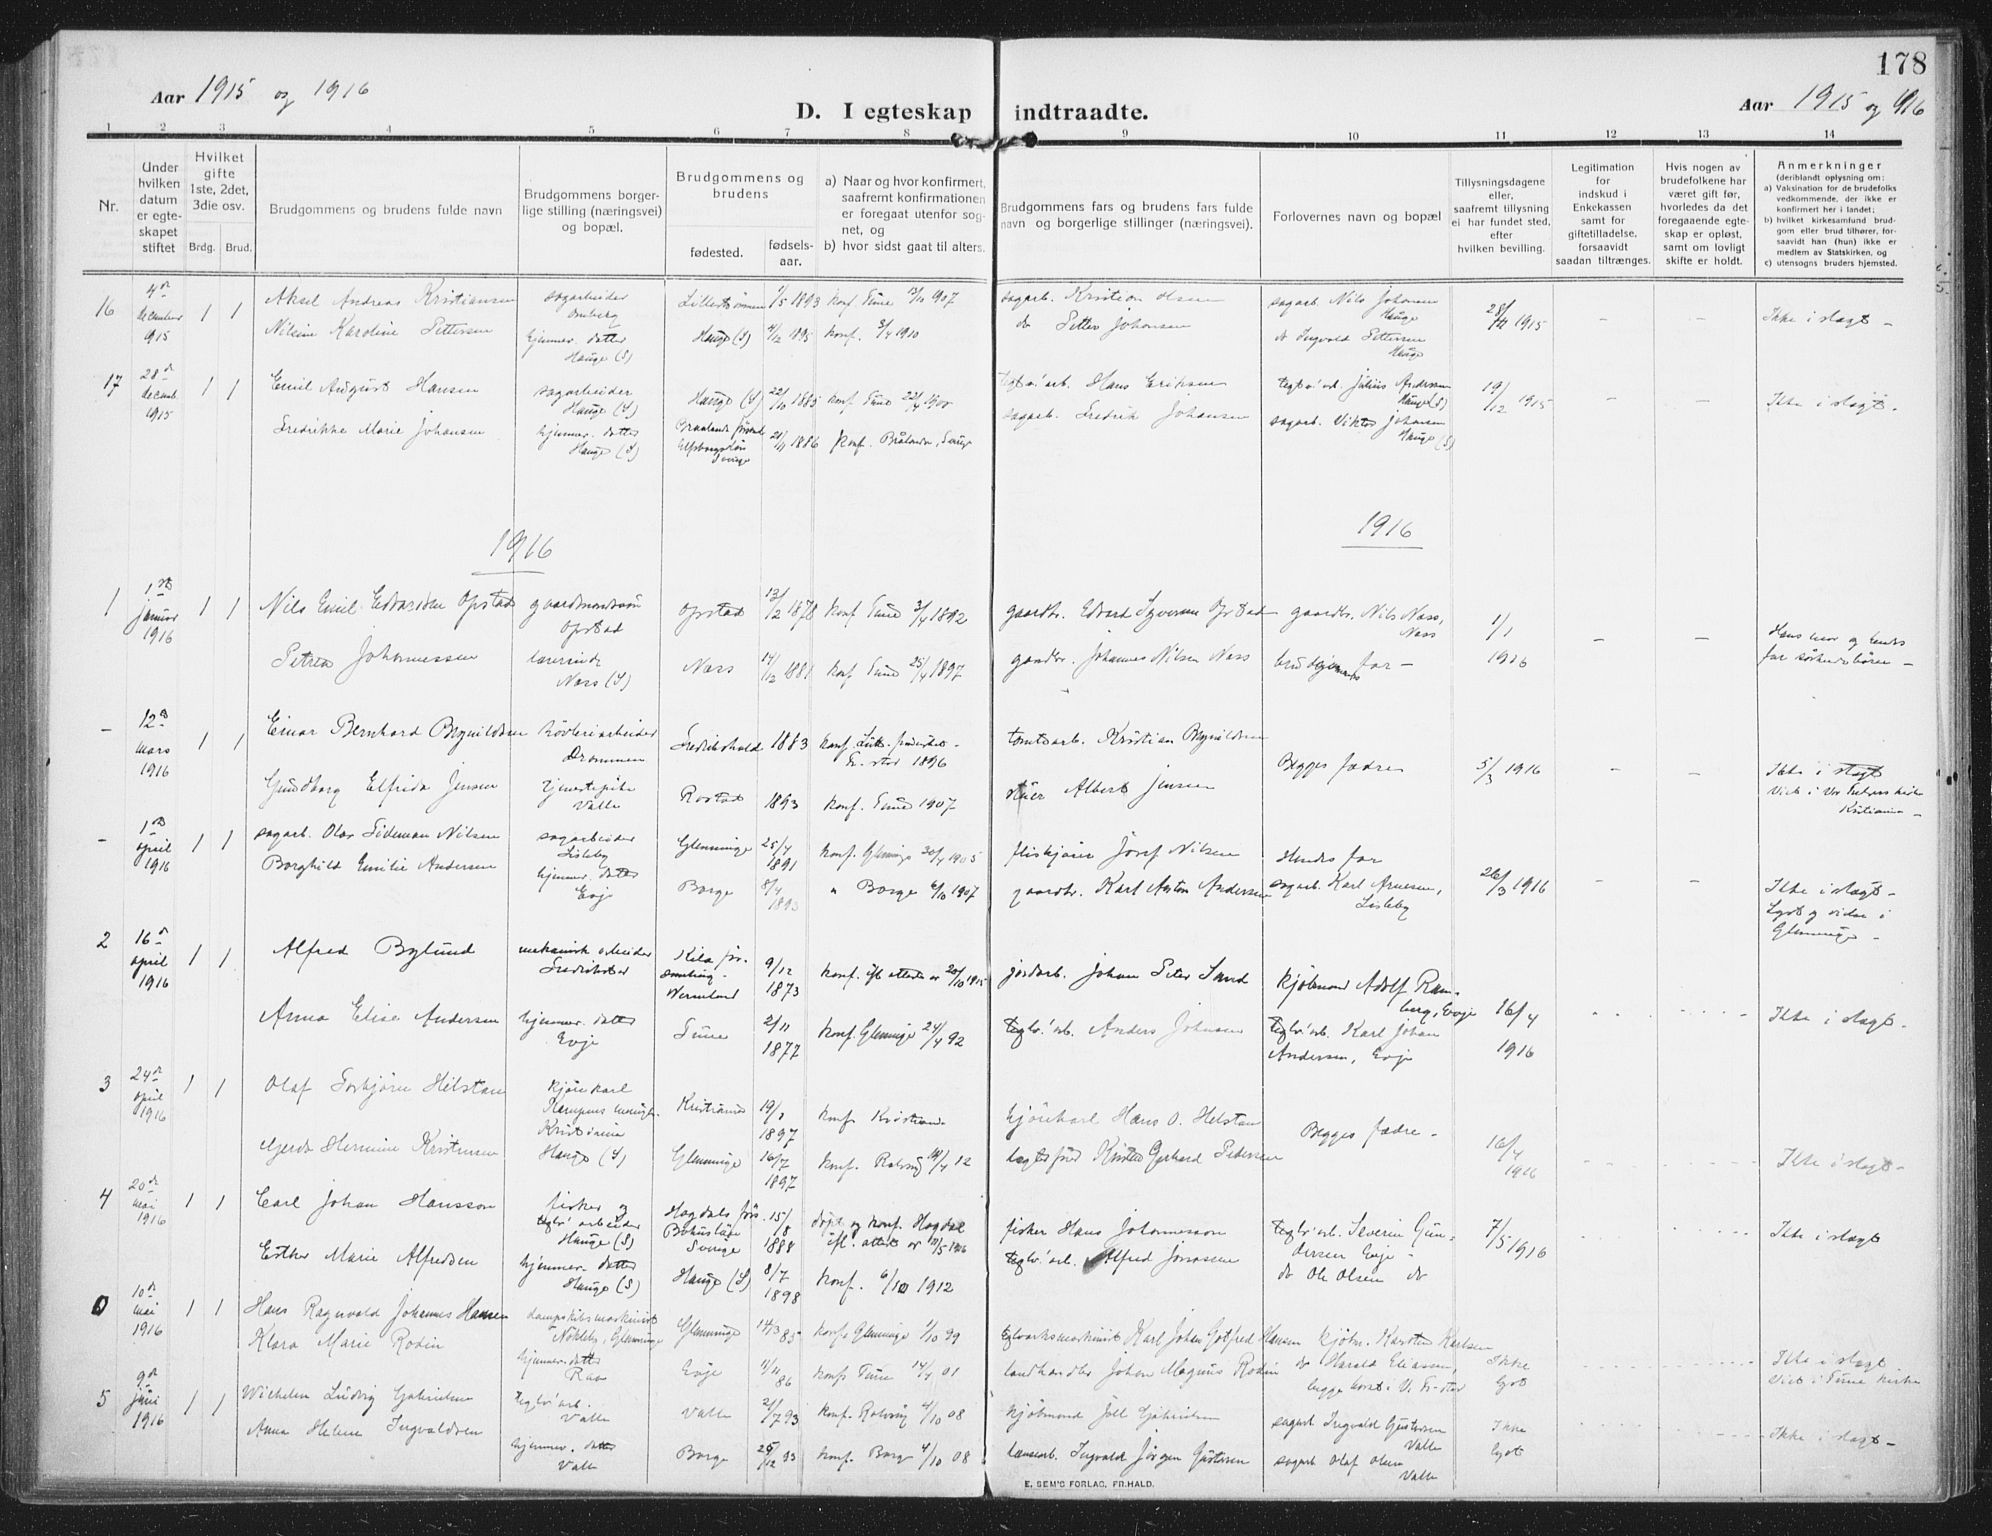 178
Aar 1915 og 1916
D. I egteskap indtraadte.
Aar 1915 og 1916
1 2 3 4 5 6 7 8 9 10 11 12 13 14
Nr.
Under hvilken datum er egteskapet stiftet
Hvilket gifte 1ste, 2det, 3die osv.
Brdg. Brud.
Brudgommens og brudens fulde navn
Brudgommens borgerlige stilling (næringsvei) og bopæl.
Brudgommens og brudens
fødested. fødselsaar.
a) Naar og hvor konfirmert, saafremt konfirmationen er foregaat utenfor sognet, og
b) hvor sidst gaat til alters.
Brudgommens fars og brudens fars fulde navn og borgerlige stillinger (næringsvei).
Forlovernes navn og bopæl
Tillysningsdagene eller, saafremt tillysning ei har fundet sted, efter hvilken bevilling.
Legitimation for indskud i Enkekassen samt for giftetilladelse, forsaavidt saadan tiltrænges.
Hvis nogen av brudefolkene har været gift før, hvorledes da det foregaaende egteskap er opløst, samt om lovligt skifte er holdt.
Anmerkninger (deriblandt oplysning om:
a) Vaksination for de brudefolks vedkommende, der ikke er konfirmert her i landet;
b) hvilket kirkesamfund brudgom eller brud tilhører, forsaavidt han (hun) ikke er medlem av Statskirken, og
c) utensogns bruders hjemsted.
16 4de december 1915 1 1 Aksel Andreas Kristiansen sagarbeider 1/5 1893 konf. Tune 13/10 1907 sagarb. Kristian Olsen sagarb. Nils Johansen Hauge 28/11 1915 – – Ikke i slægt –
Nilsine Karoline Pettersen hjemmev. datter Hauge (S) Hauge (S) 4/12 1895 konf. 3/4 1910 do Petter Johansen do Ingvald Pettersen Hauge
17 28de decemb. 1915 1 1 Emil August Hansen sagarbeider Hauge (S) Hauge (S) 22/10 1885 konf. Tune 22/4 1900 teglv.arb. Hans Eriksen teglv.arb. Julius Andersen Hauge (S) 19/12 1915 – – Ikke i slægt.
Fredrikke Marie Johansen hjemmev. datter Hauge (S) Elfsborgslän Sverige 1886 konf. Sverige sagarb. Fredrik Johansen sagarb. Viktor Johansen Hauge (S)
1916
1916
1 1ste januar 1916 1 1 Nils Emil Edvardsen Opstad gaardmandssøn Opstad Opstad 13/12 1878 konf. Tune 3/4 1892 gaardbr. Edvard Syversen Opstad gaardbr. Nils Næss, Næss 1/1 1916 – – Hans mor og hendes far søskendebørn –
Petrea Johannessen lærerinde Næss (S) Næss 14/12 1881 konf. Tune 25/4 1897 gaardbr. Johannes Nilsen Næss brudgommens far –
– 12te mars 1916 1 1 Einar Bernhard Brynildsen høvleriarbeider Drammen Fredrikshald 1883 1896 tomtearb. Kristian Brynildsen Begges fædre 5/3 1916 – – Ikke i slægt
Gundborg Elfrida Jensen tjenestepike Valle Rostad 1893 konf. Tune 1907 Albert Jensen Viet i Vor Frelsers kirke Kristiania –
– 1ste april 1916 1 1 sagarb. Olav Sideman Nilsen sagarbeider Lisleby Glemminge 25/4 1891 konf. Glemminge 30/4 1905 fliskjører Josef Nilsen Hendes far 26/3 1916 – – Ikke i slægt –
Borghild Emilie Andersen hjemmev. datter Evje Borge 8/4 1893 " Borge 6/10 1907 gaardbr. Karl Anton Andersen sagarb. Karl Arnesen, Lisleby Lyst og viet i Glemminge –
2 16de april 1916 1 1 Alfred Bylund mekanisk arbeider Fredrikstad Kila församling – Wermland 9/12 1873 konf. ifl. attest av 20/10 1915 jordarb. Johan Peter Sand kjøbmand Adolf Ramberg, Evje 16/4 1916 Ikke i slægt –
Anna Elise Andersen hjemmev. datter Evje Tune 2/11 1877 konf. Glemminge 24/4 92 teglv.arb. Anders Johnsen teglv.arb. Karl Johan Andersen, Evje
3 24de april 1916 1 1 Olaf Torbjörn Helstan kjørekarl Kampens menigh. Kristiania Kristiania 19/1 1897 konf. Kristiania kjørekarl Hans O. Helstan Begges fædre – 16/4 1916 Ikke i slægt –
Gjerda Hermine Kristensen Hauge (S) Glemminge 16/7 1897 konf. Rolvsøy 14/4 12 Gerhard Pedersen
4 20de mai 1916 1 1 Carl Johan Hansson fisker og teglv.arbeider Hauge (S) Hogdals förs. Bohuslän Sverige 15/8 1888 døpt og konf. Hogdal ifl. attest av 11/5 1916 fisker Hans Johannesson teglv.arb. Severin Gundersen Evje – 7/5 1916 Ikke i slægt
Esther Marie Alfredsen hjemmev. datter Hauge (S) Hauge (S) 8/7 1898 konf. 6/10 1912 teglv.arb. Alfred Jonassen do Ole Olsen do
0 10de mai 1916 1 1 Hans Ragnvald Johannes Hansen dampskibsmaskinist Nøkleby, Glemminge Glemminge 14/3 85 konf. Glemminge 1/10 99 teglverksmaskinist Karl Johan Gotfred Hansen kjøbm. Karsten Karlsen Ikke lyst Ikke i slægt
Klara Marie Rodin hjemmev. datter Raa Evje 11/11 86 konf. Tune 14/4 01 landhandler Johan Magnus Rodin do Harald Eliassen, begge bosat i V. Fr-stad Viet i Tune kirke
5 9de juni 1916 1 1 Wilhelm Ludvig Gabrielsen teglv.arb. Valle Valle 2/7 93 konf. Rolvsøy 4/10 08 kjøbmand Joël Gabrielsen sagarb. Ingvald Gustavsen Valle Ikke lyst Ikke i slægt –
Anna Helene Ingvaldsen hjemmev. datter Valle Borge 25/12 93 konf. Borge 4/10 08 Ingvald Jørgen Gustavsen sagarb. Olaf Olsen Valle
E. SEM'S FORLAG, FR.HALD.